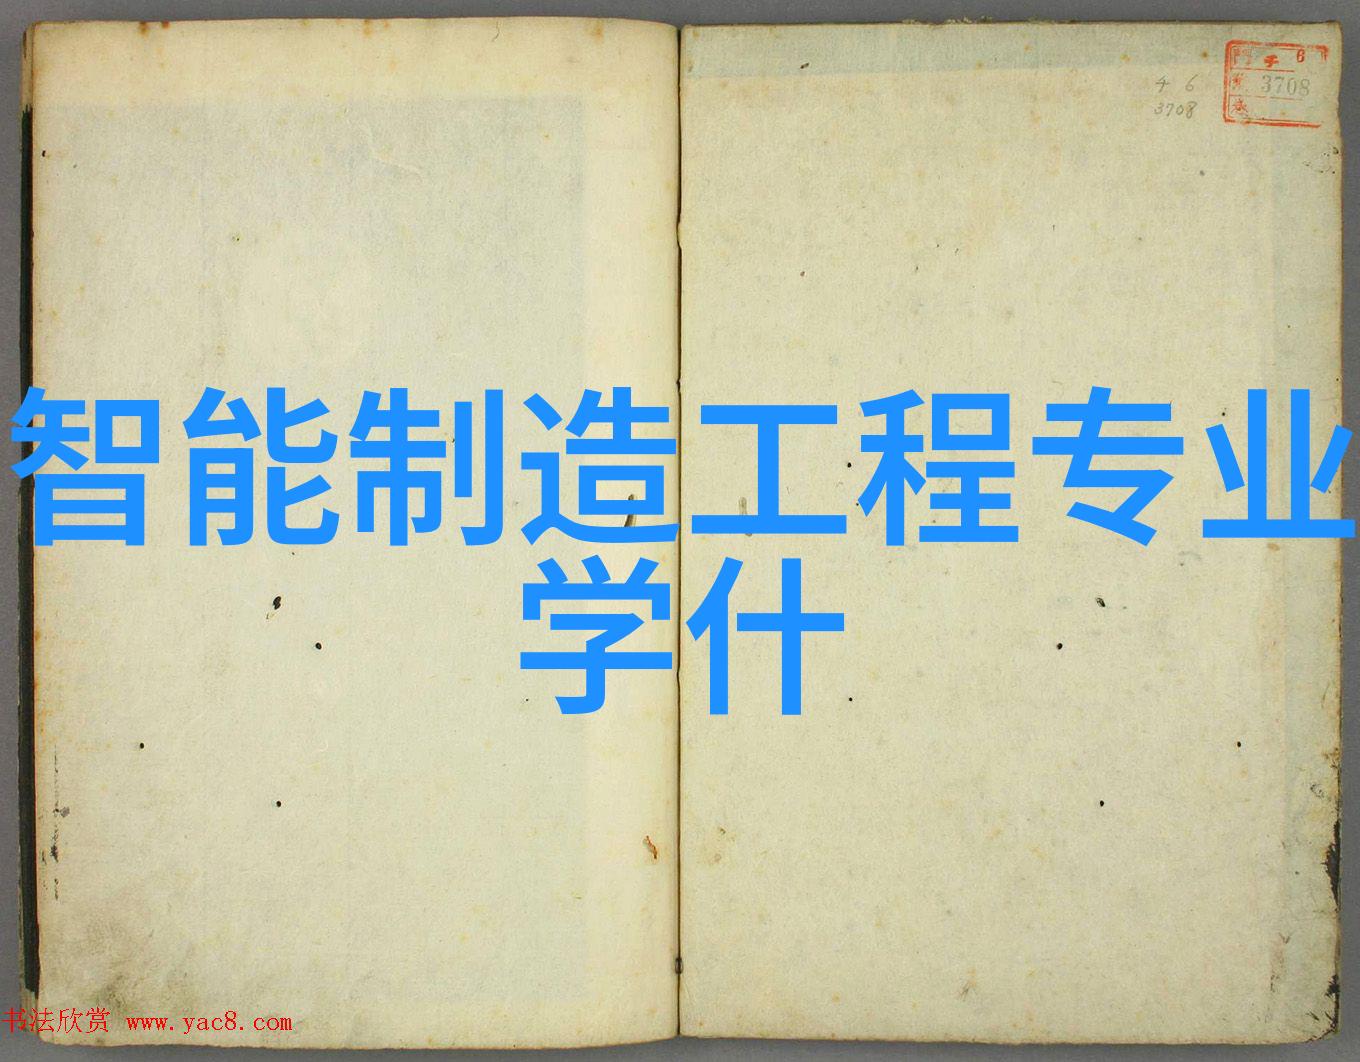 チ 6
3708
4 6
3708
智能制造工程专业
学什
书法欣赏 www.yac8.com